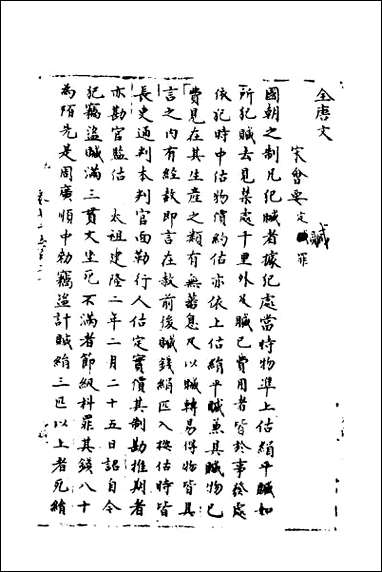 全唐文
宋會要 定贓罪
贓
國朝之制凡犯贓者據犯處當時物準上估絹平贓如
所犯贓去見禁處千里外及贓已費用者皆於事發處
依犯時中估物價約估亦依上估絹平贓兼其贓物已
費見在其生產之類有無蕃息及以贓轉易得物皆具
言之內有經赦即言在赦前後贓錢絹匹入捴估時皆
長史通判本判官面勒行人估定實價其制勘推期者
亦勘官監估 太祖建隆二年二月二十五日詔自今
犯竊盜贓滿三貫文坐死不滿者節級科罪其錢八十
為陌先是周廣順中勅竊盜計贓絹三匹以上者死絹